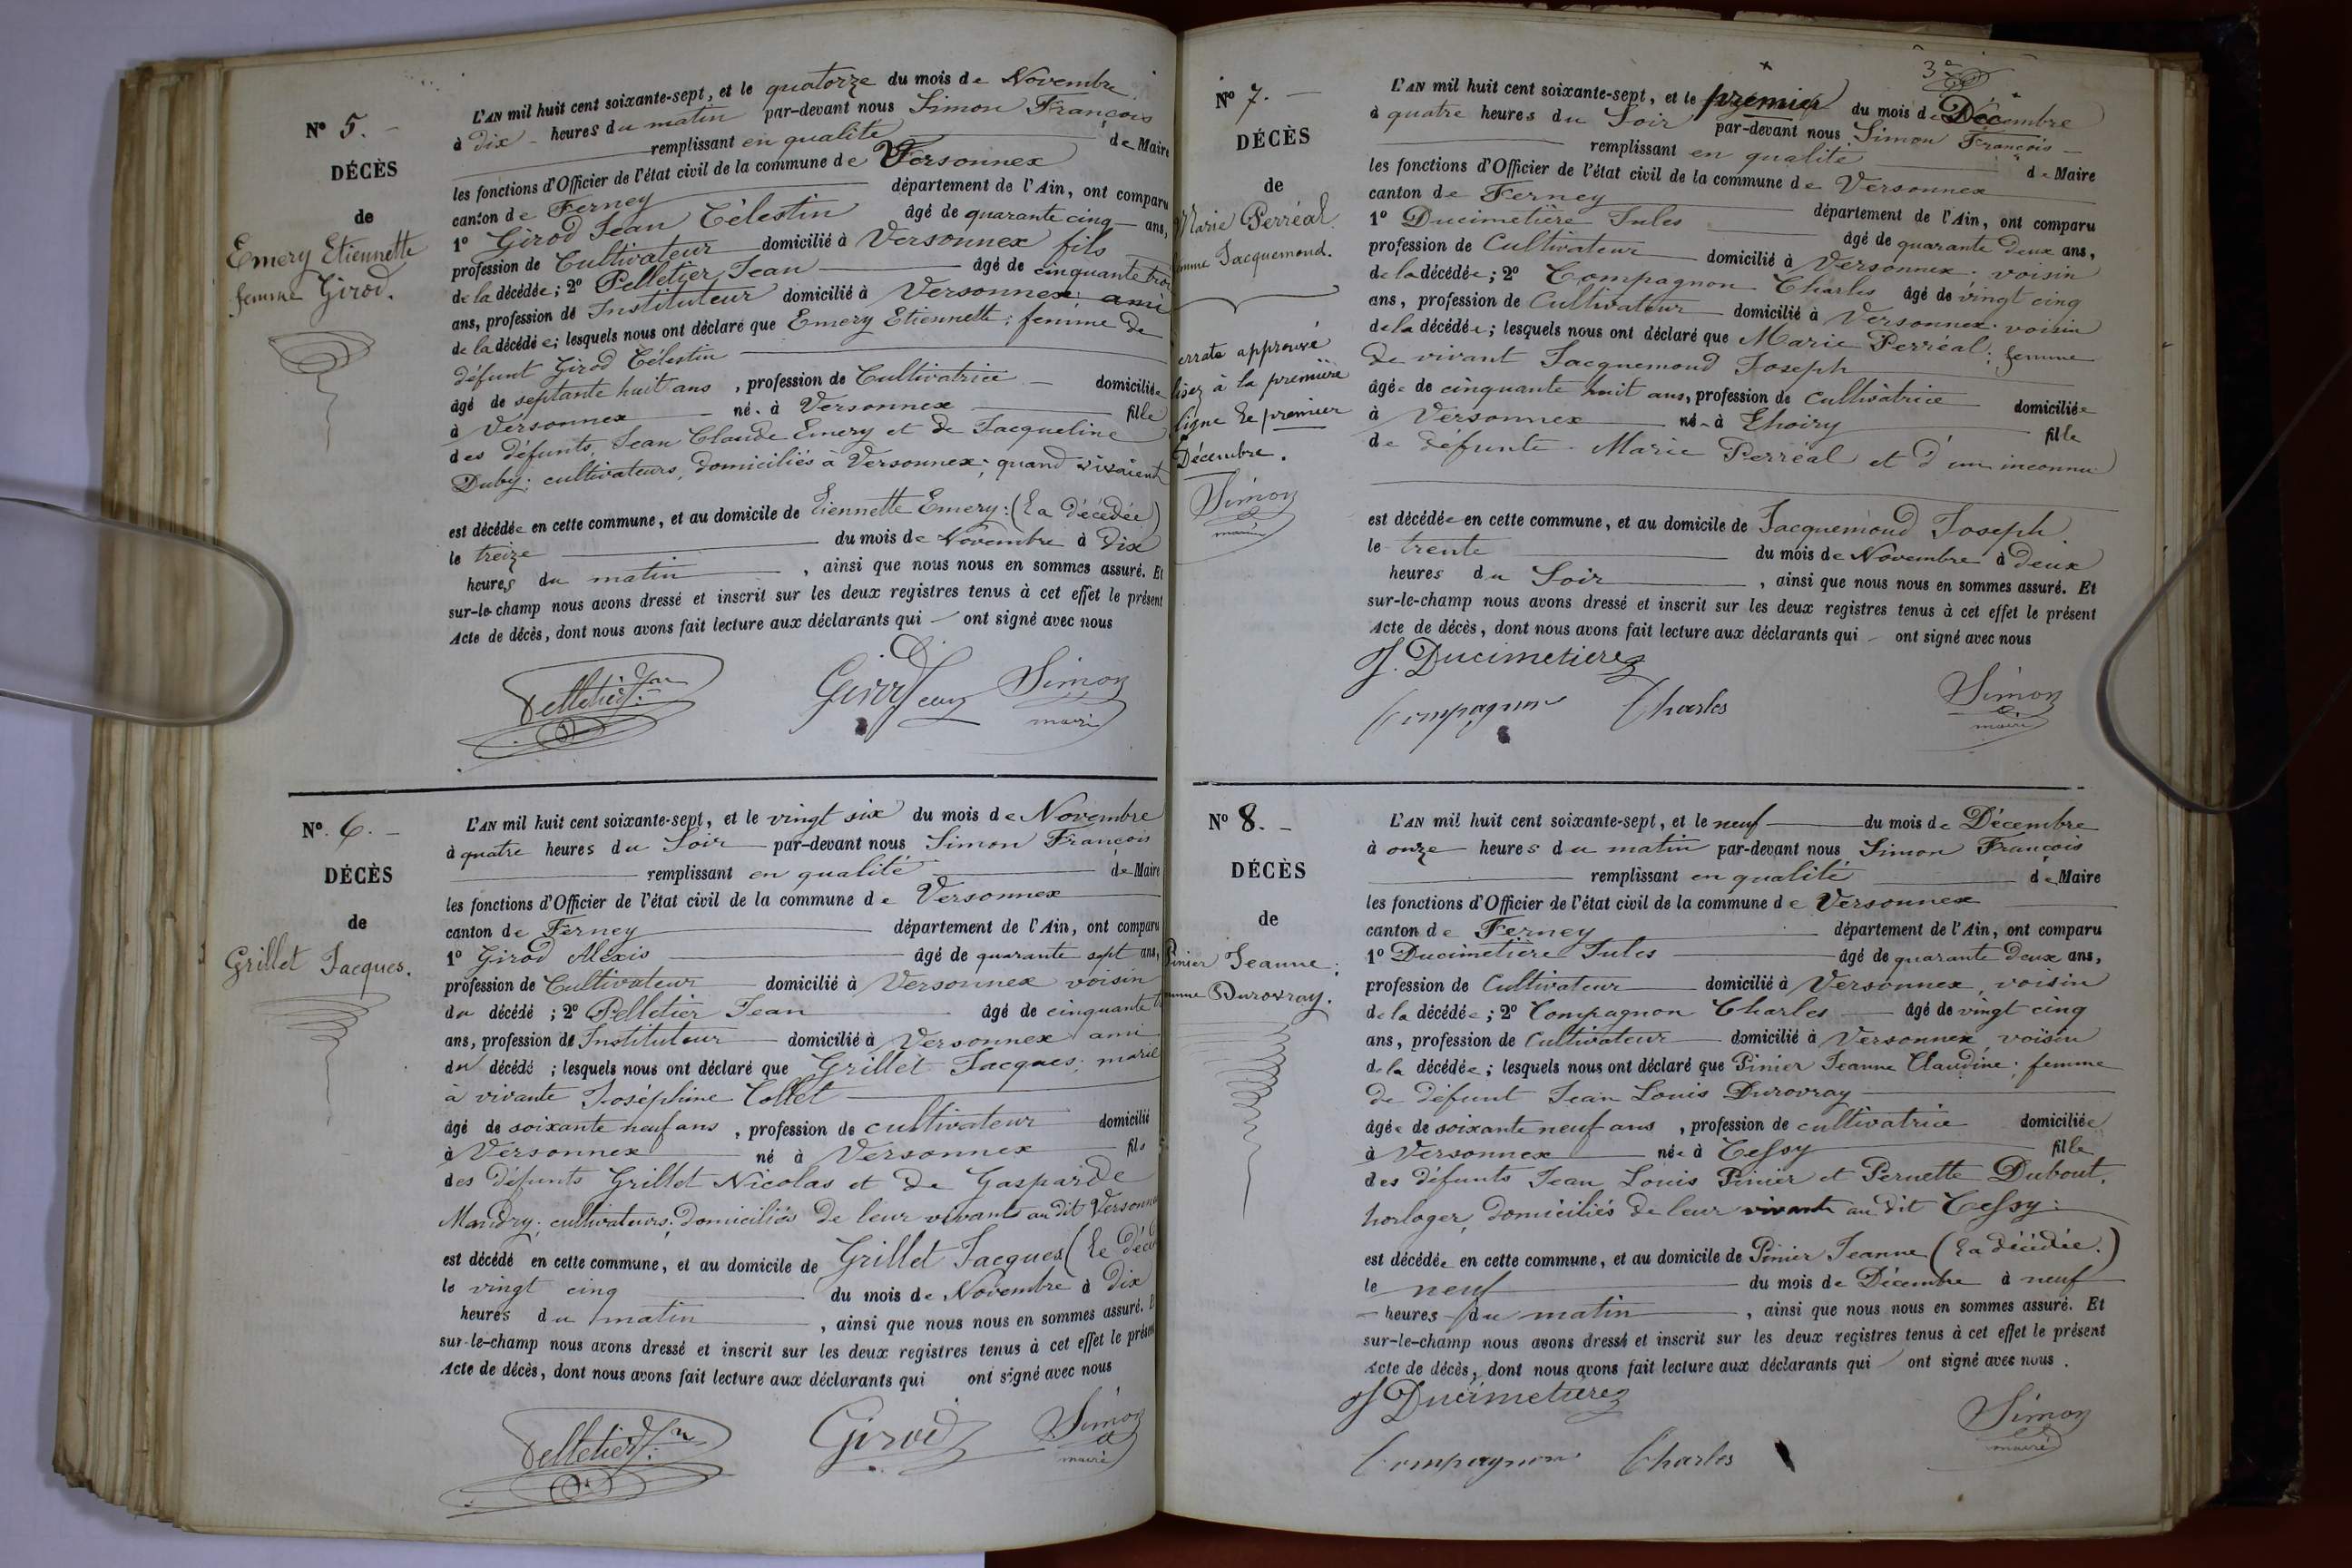 N° 5. -
DÉCÈS
de
Emery Etiennette
femme Girod.
L'AN mil huit cent soixante-sept, et le quatorze du mois de Novembre
à dix - heures du matin par-devant nous Simon François
remplissant en qualité de Maire
les fonctions d'Officier de l'état civil de la commune de Versonnex
canton de Ferney département de l'Ain, ont comparu
1° Girod Jean Célestin âgé de quarante cinq ans,
profession de Cultivateur domicilié à Versonnex fils
de la décédée; 2° Pelletier Jean âgé de cinquante
ans, profession de Instituteur domicilié à Versonnex ami
de la décédée; lesquels nous ont déclaré que Emery Etiennette; femme de
défunt Girod Célestin
âgé de septante huit ans, profession de Cultivatrice - domiciliée
à Versonnex née à Versonnex fille
des défunts, Jean Claude Emery et de Jacqueline
Duby; cultivateurs, domiciliés à Versonnex; quand vivaient
est décédée en cette commune, et au domicile de Etiennette Emery: (La décédée)
le treize du mois de Novembre à dix
heures du matin, ainsi que nous nous en sommes assuré. Et
sur-le-champ nous avons dressé et inscrit sur les deux registres tenus à cet effet le présent
Acte de décès, dont nous avons fait lecture aux déclarants qui - ont signé avec nous
Pelletier Jean Girod Jean Simon
maire
N° 6. -
DÉCÈS
de
Grillet Jacques.
L'AN mil huit cent soixante-sept, et le vingt six du mois de Novembre
à quatre heures du Soir par-devant nous Simon François
remplissant en qualité de Maire
les fonctions d'Officier de l'état civil de la commune de Versonnex
canton de Ferney département de l'Ain, ont comparu
1° Girod Alexis âgé de quarante sept ans,
profession de Cultivateur domicilié à Versonnex voisin
du décédé; 2° Pelletier Jean âgé de cinquante
ans, profession de Instituteur domicilié à Versonnex ami
du décédé; lesquels nous ont déclaré que Grillet Jacques; marié
à vivante Joséphine Collet
âgé de soixante neuf ans, profession de cultivateur domicilié
à Versonnex né à Versonnex fils
des défunts Grillet Nicolas et de Gasparde
Mandry; cultivateurs; domiciliés de leur vivants au dit Versonnex
est décédé en cette commune, et au domicile de Grillet Jacques (Le
le vingt cinq du mois de Novembre à Dix
heures du matin, ainsi que nous nous en sommes assuré.
sur-le-champ nous avons dressé et inscrit sur les deux registres tenus à cet effet le présent
Acte de décès, dont nous avons fait lecture aux déclarants qui ont signé avec nous
Pelletier Jn Girod Simon
maire
3e
N° 7. -
DÉCÈS
de
Marie Perréal.
femme Jacquemond.
errata approuvé
lisez à la première
ligne le premier
Décembre.
Simon
maire
L'AN mil huit cent soixante-sept, et le premier du mois de Décembre
à quatre heures du Soir par-devant nous Simon François -
remplissant en qualité de Maire
les fonctions d'Officier de l'état civil de la commune de Versonnex
canton de Ferney département de l'Ain, ont comparu
1° Ducimetière Jules âgé de quarante deux ans,
profession de Cultivateur domicilié à Versonnex; voisin
de la décédée; 2° Compagnon Charles âgé de vingt cinq
ans, profession de Cultivateur domicilié à Versonnex voisin
de la décédée; lesquels nous ont déclaré que Marie Perréal; femme
de vivant Jacquemoud Joseph
âgée de cinquante huit ans, profession de Cultivatrice domiciliée
à Versonnex née à Thoiry fille
de défunte Marie Perréal et d'un inconnu
est décédée en cette commune, et au domicile de Jacquemoud Joseph.
le trente du mois de Novembre à deux
heures du Soir, ainsi que nous nous en sommes assuré. Et
sur-le-champ nous avons dressé et inscrit sur les deux registres tenus à cet effet le présent
Acte de décès, dont nous avons fait lecture aux déclarants qui - ont signé avec nous
J. Ducimetiere
Compagnon Charles Simon
maire
N° 8. -
DÉCÈS
de
Pinier Jeanne;
femme Durovray.
L'AN mil huit cent soixante-sept, et le neuf du mois de Décembre
à onze heures du matin par-devant nous Simon François
remplissant en qualité de Maire
les fonctions d'Officier de l'état civil de la commune de Versonnex
canton de Ferney département de l'Ain, ont comparu
1° Ducimetière Jules âgé de quarante deux ans,
profession de Cultivateur domicilié à Versonnex, voisin
de la décédée; 2° Compagnon Charles âgé de vingt cinq
ans, profession de Cultivateur domicilié à Versonnex voisin
de la décédée; lesquels nous ont déclaré que Pinier Jeanne Claudine; femme
de défunt Jean Louis Durovray
âgée de soixante neuf ans, profession de cultivatrice domiciliée
à Versonnex née à Cessy fille
des défunts Jean Louis Pinier et Pernette Dubout,
horloger, domiciliés de leur vivants au dit Cessy:
est décédée en cette commune, et au domicile de Pinier Jeanne (La décédée.)
le neuf du mois de Décembre à neuf
- heures du matin, ainsi que nous nous en sommes assuré. Et
sur-le-champ nous avons dressé et inscrit sur les deux registres tenus à cet effet le présent
Acte de décès, dont nous avons fait lecture aux déclarants qui ont signé avec nous.
J Ducimetiere
Compagnon Charles Simon
maire